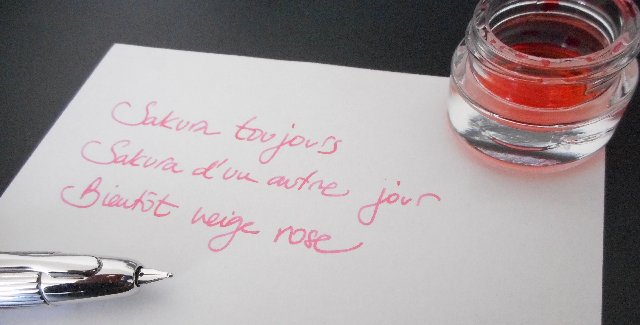 Sakura toujours
Sakura d'un autre jour
Bientôt neige rose